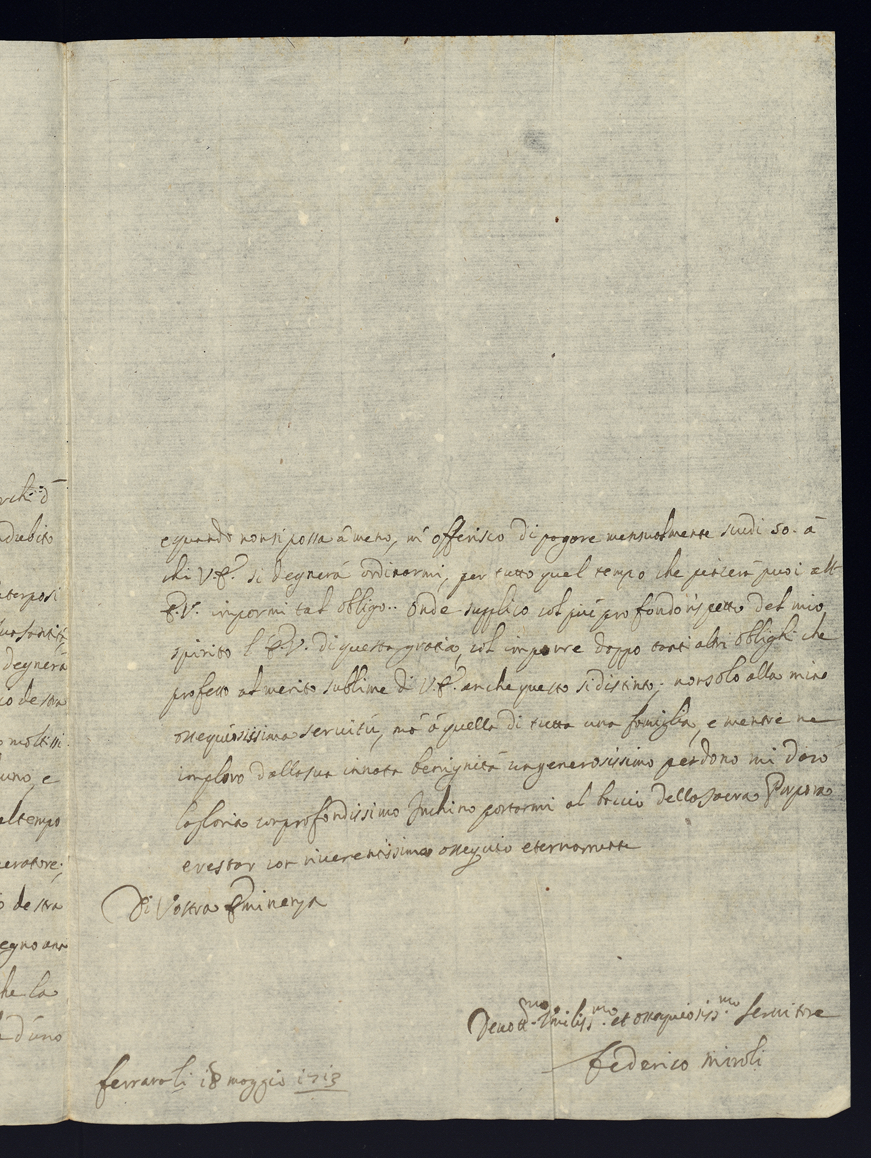 e quando non si possa à meno, m'offerisco di pagare mensualmente scudi 50. à
chi V.E. si degnerà ordinarmi, per tutto quel tempo che piacerà puoi all
E.V. impormi tal obligo. Onde supplico col più profondo rispetto del mio
spirito l'E.V. di questa gratia, col impore doppo tanti altri oblighi che
professo al merito sublime di V.E. anche questo si distinto, non solo alla mia
ossequiosissima servitù, mà à quella di tutta una famiglia, e mentre ne
imploro dalla sua innata benignità un generosissimo perdono mi dò
la gloria con profondissimo Inchino portarmi al baccio della Sacra Porpora
e restar con riverentissimo ossequio eternamente
Di Vostra Eminenza
Devot.mo Umiliss.mo et ossequiosiss.mo Servitore
Federico Miroli
Ferrara li 18 maggio 1713
rchi d
ndubito
nterposi
degnerà
co desta
moltissi
uno, e
altempo
peratore;
desta
egno anc
he la
d'uno